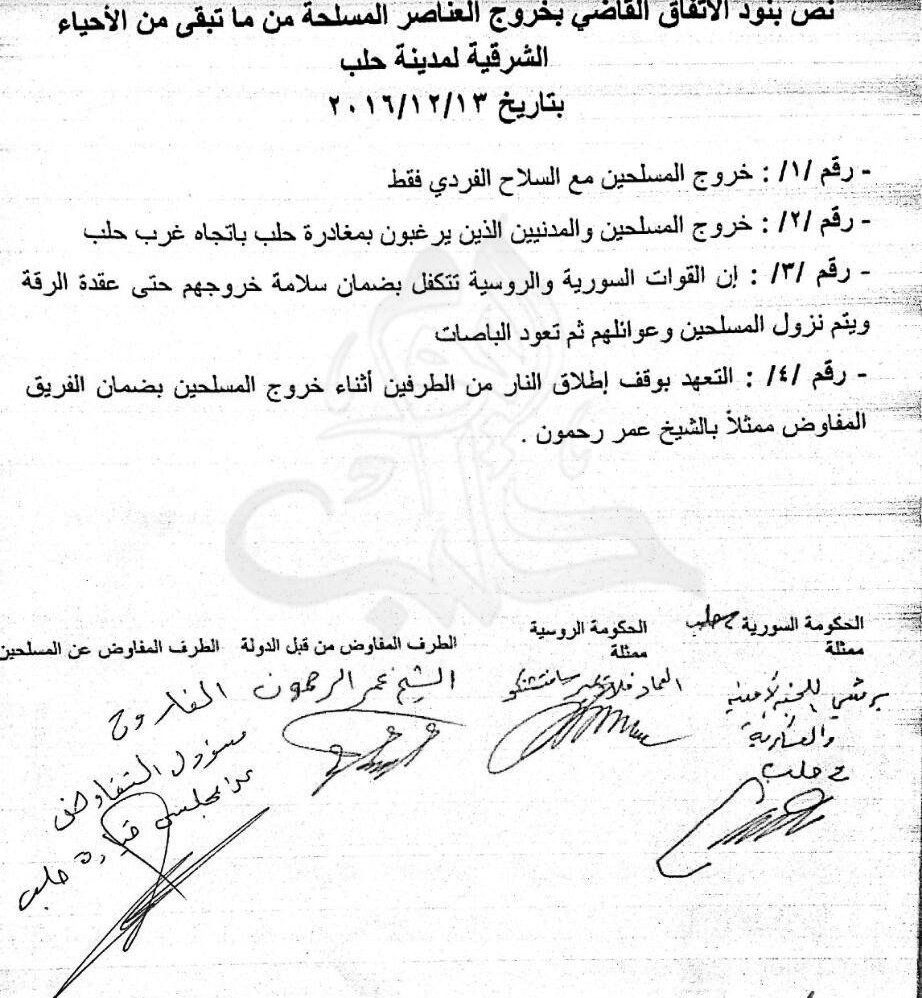 نص بنود الاتفاق القاضي بخروج العناصر المسلحة من ما تبقى من الأحياء
الشرقية لمدينة حلب
بتاريخ ٢٠١٦/١٢/١٣
- رقم /١/ : خروج المسلحين مع السلاح الفردي فقط
- رقم /٢/ : خروج المسلحين والمدنيين الذين يرغبون بمغادرة حلب باتجاه غرب حلب
- رقم /٣/ : إن القوات السورية والروسية تتكفل بضمان سلامة خروجهم حتى عقدة الرقة
ويتم نزول المسلحين وعوائلهم ثم تعود الباصات
- رقم /٤/ : التعهد بوقف إطلاق النار من الطرفين أثناء خروج المسلحين بضمان الفريق
المفاوض ممثلاً بالشيخ عمر رحمون .
الحكومة السورية حلب
ممثلة
اللجنة الأمنية
والعسكرية
حلب
الحكومة الروسية
ممثلة
العماد
الطرف المفاوض من قبل الدولة
الشيخ عمر الرحمون
الطرف المفاوض عن المسلحين
الفاروق
مسؤول التفاوض
مجلس قيادة حلب
حلب